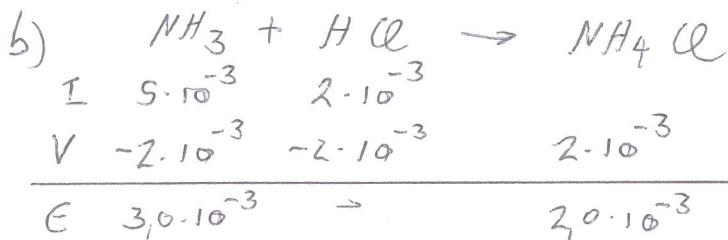 b) NH₃ + HCl → NH₄Cl
I 5·10⁻³ 2·10⁻³
V -2·10⁻³ -2·10⁻³ 2·10⁻³
E 3,0·10⁻³ - 2,0·10⁻³